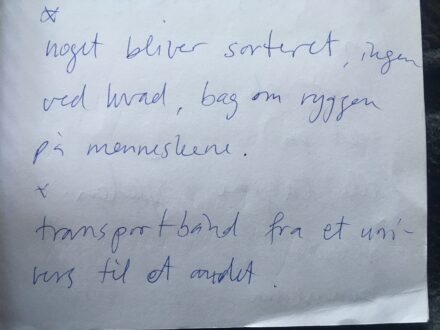 *
noget bliver sorteret, ingen
ved hvad, bag om ryggen
på menneskene.
*
transportbånd fra et uni-
vers til et andet.